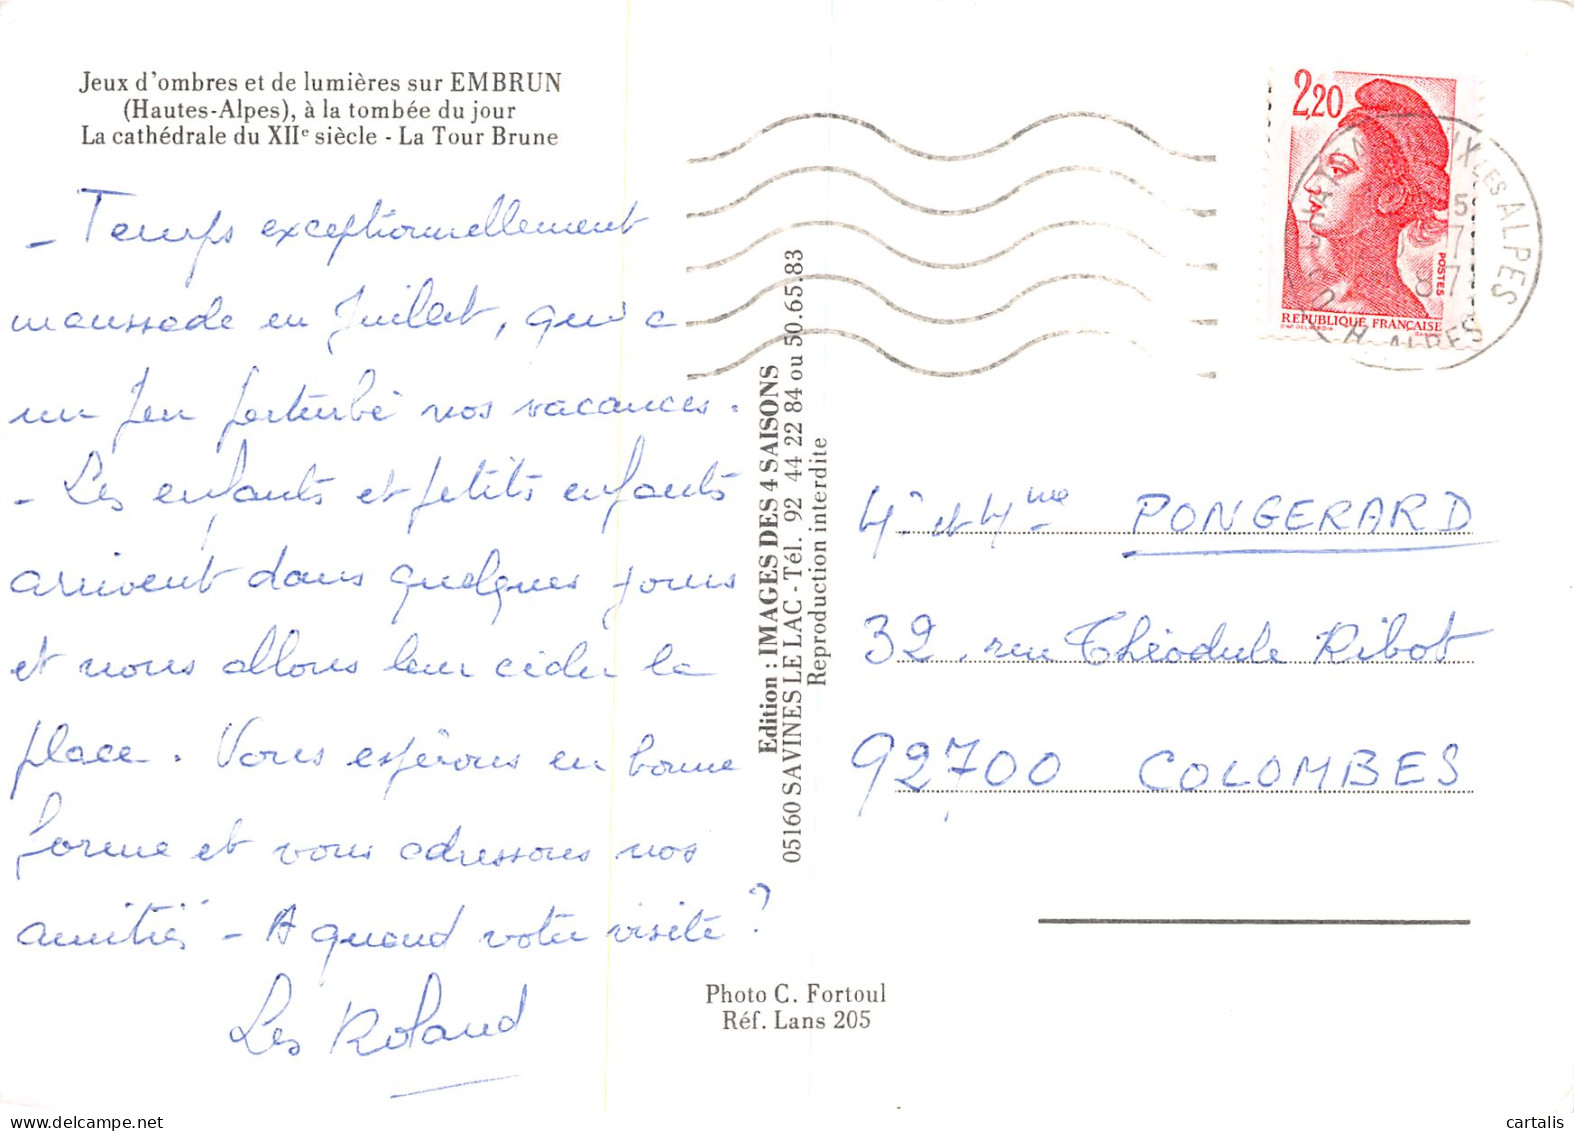 Jeux d'ombres et de lumières sur EMBRUN
(Hautes-Alpes), à la tombée du jour
La cathédrale du XIIe siècle - La Tour Brune
- Temps exceptionnellement
maussade en Juillet, qui a
un peu perturbé nos vacances.
- Les enfants et petits enfants
arrivent dans quelques jours
et nous allons leur céder la
place. Vous espérons en bonne
forme et vous adressons nos
amitiés - A quand votre visite ?
Les Roland
Edition : IMAGES DES 4 SAISONS
05160 SAVINES LE LAC - Tél. 92 44 22 84 ou 50.65.83
Reproduction interdite
Photo C. Fortoul
Réf. Lans 205
2,20
POSTES
REPUBLIQUE FRANÇAISE
LES ALPES
5
7
87
H. ALPES
Mr et Mme PONGERARD
32, rue Théodule Ribot
92700 COLOMBES
delcampe.net
cartalis